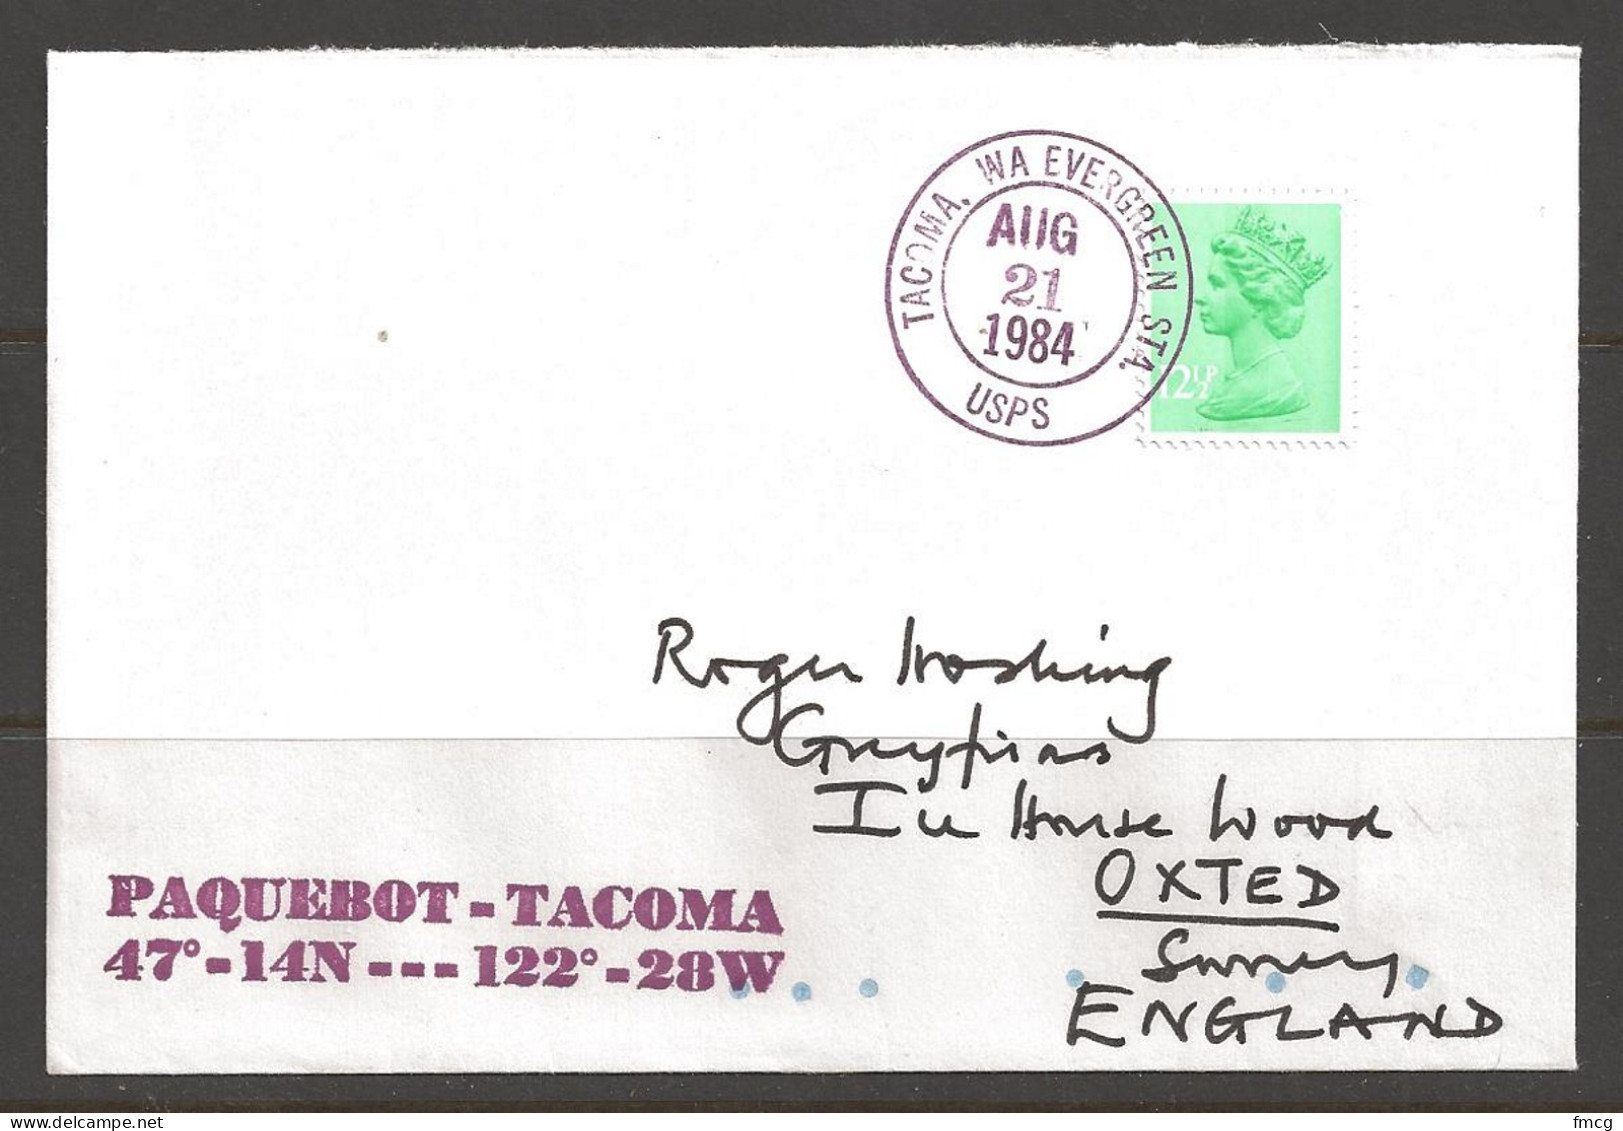 TACOMA, WA EVERGREEN STA.
AUG
21
1984
USPS
12½P
Roger Hosking
Greyfriars
Ice House Wood
OXTED
Surrey
ENGLAND
PAQUEBOT - TACOMA
47° - 14N --- 122° - 28W
fmcg